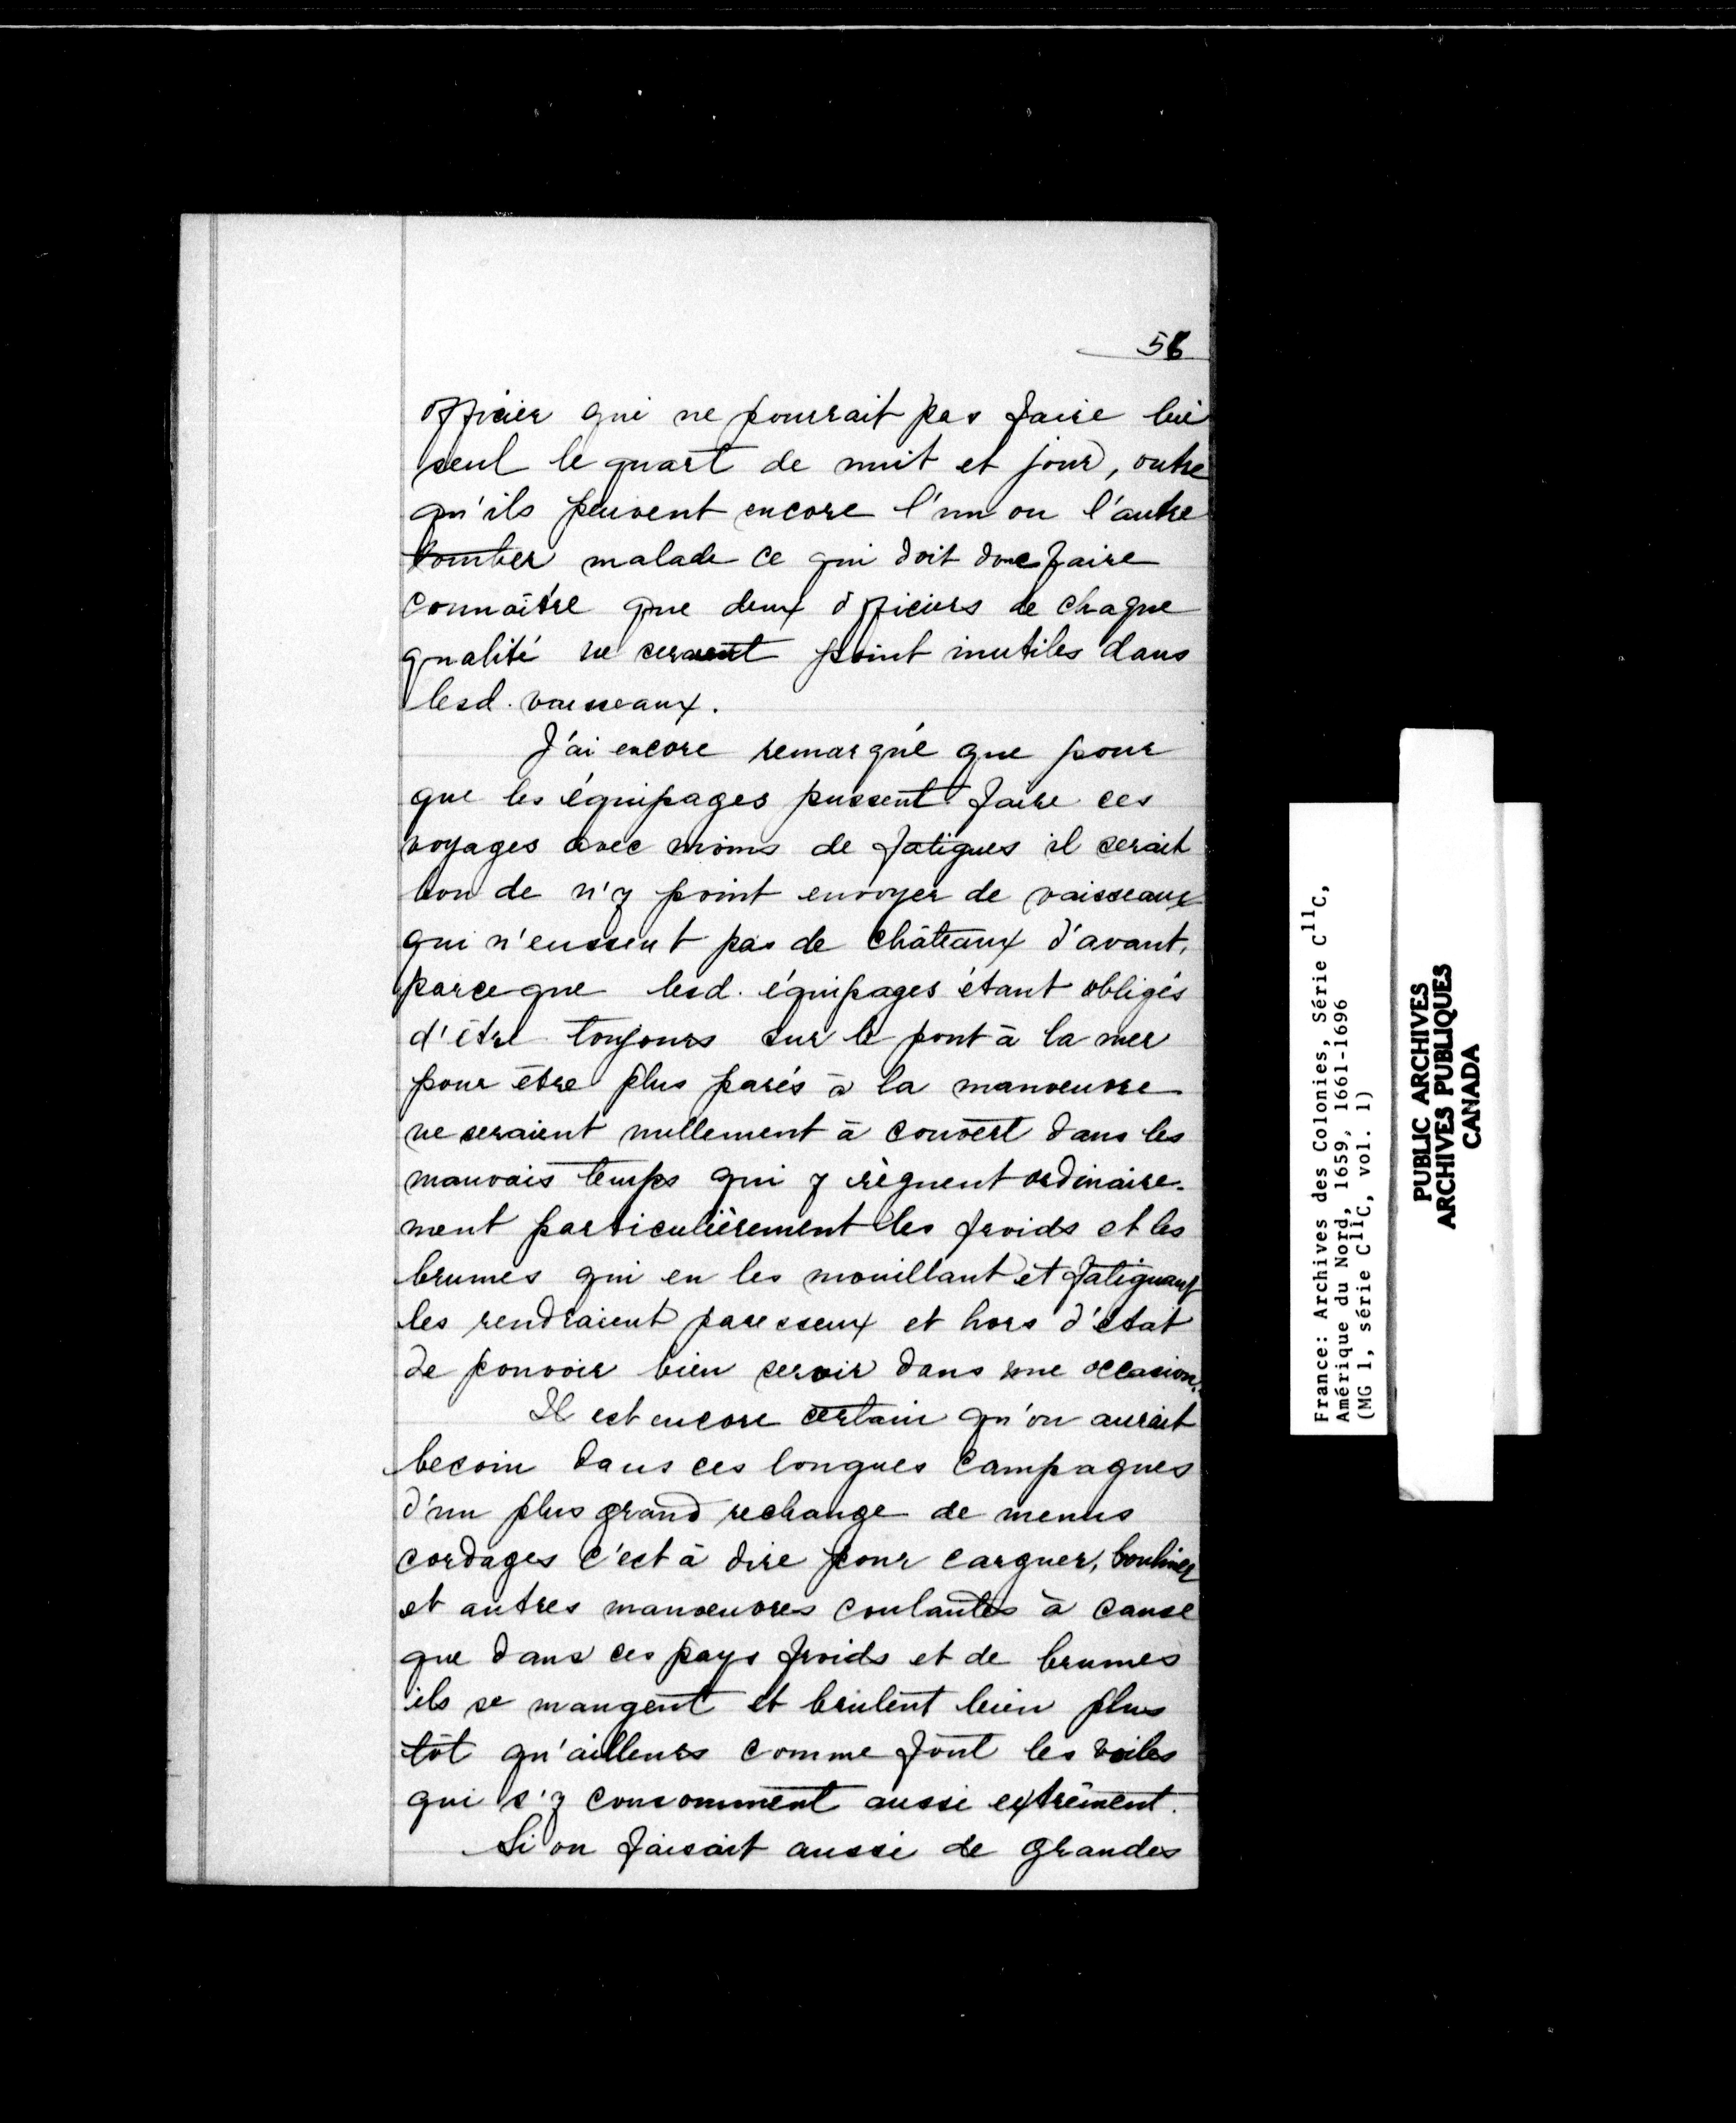 56
officier qui ne pourrait pas faire lui
seul le quart de nuit et jour, outre
qu'ils peuvent encore l'un ou l'autre
tomber malade ce qui doit donc faire
connaître que deux officiers de chaque
qualité ne seraient point inutiles dans
lesd. vaisseaux.
J'ai encore remarqué que pour
que les équipages pussent faire ces
voyages avec moins de fatigues il serait
bon de n'y point envoyer de vaisseaux
qui n'eussent pas de châteaux d'avant,
parceque lesd. équipages étant obligés
d'être toujours sur le pont à la mer
pour être plus parés à la manoeuvre
ne seraient nullement à couvert dans les
mauvais temps qui y règnent ordinaire-
ment particulièrement les froids et les
brumes qui en les mouillant et fatiguant
les rendraient paresseux et hors d'état
de pouvoir bien servir dans une occasion.
Il est encore certain qu'on aurait
besoin dans ces longues campagnes
d'un plus grand rechange de menus
cordages c'est à dire pour carguer, bouliner
et autres manoeuvres coulantes à cause
que dans ces pays froids et de brumes
ils se mangent et brulent bien plus
tôt qu'ailleurs comme font les voiles
qui s'y consomment aussi extrêment.
Si on faisait aussi de grandes
France: Archives des Colonies, Série C11C,
Amérique du Nord, 1659, 1661-1696
(MG 1, série C11C, vol. 1)
PUBLIC ARCHIVES
ARCHIVES PUBLIQUES
CANADA